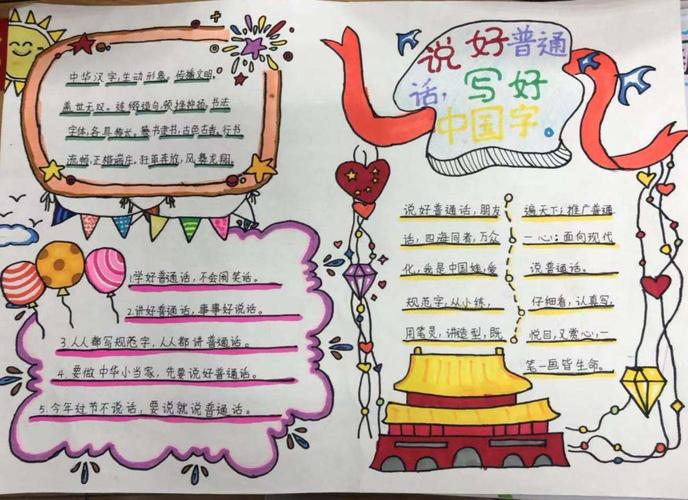 说好普通
话，写好
中国字。
中华汉字，生动形象，传播文明，
盖世无双。遣
书法
字体，各具
隶书，古色古香。行书
流畅，正楷端庄。狂草奔放，
1.学好普通话，不会闹笑话。
2.讲好普通话，事事好说话。
3.人人都写规范字，人人都讲普通话。
4.要做中华小当家，先要说好普通话。
5.今年过节不说话，要说就说普通话。
说好普通话，朋友
遍天下；推广普通
话，四海同者，万众
一心；面向现代
化，我是中国娃，爱
说普通话。
规范字，从小练，
仔细看，认真写。
用笔灵，讲造型，既
悦目，又赏心，一
笔一画皆生命。